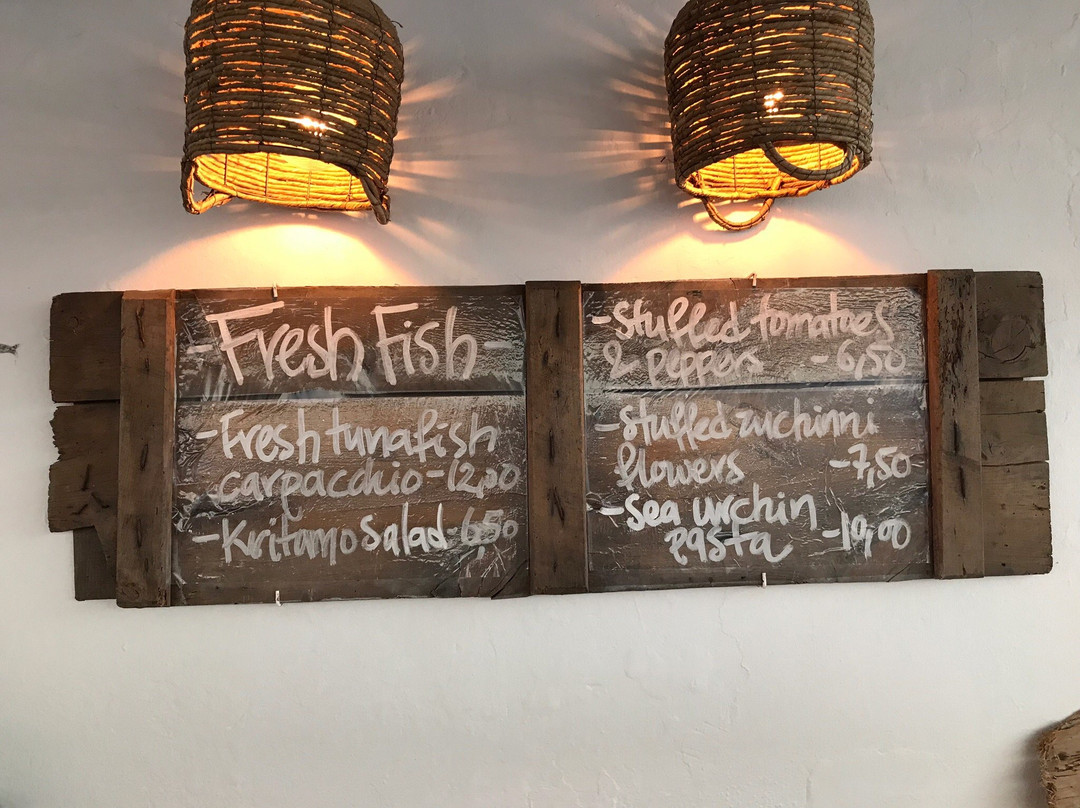 - Fresh Fish -
- Fresh tunafish
carpacchio - 12,00
- Kritamo salad - 6,50
- Stuffed tomatoes
& peppers - 6,50
- Stuffed zuchinni
flowers - 7,50
- Sea urchin
pasta - 19,00